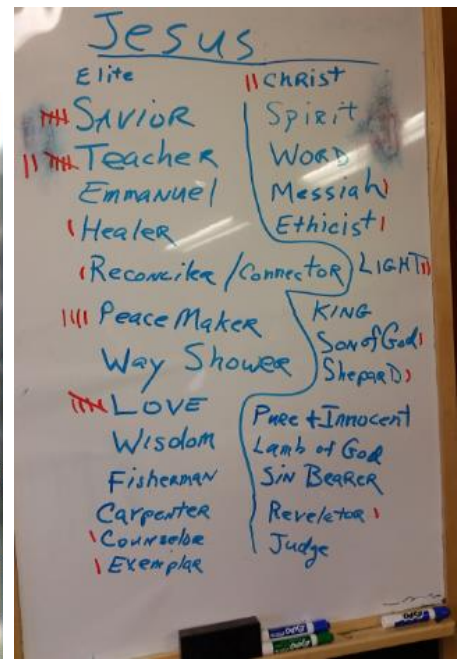 Jesus
Elite
Savior
Teacher
Emmanuel
Healer
Reconciler/Connector
Peace Maker
Way Shower
Love
Wisdom
Fisherman
Carpenter
Counselor
Exemplar
Christ
Spirit
Word
Messiah
Ethicist
Light
King
Son of God
Shepard
Pure + Innocent
Lamb of God
Sin Bearer
Revelator
Judge
EXPO
EXPO
EXPO